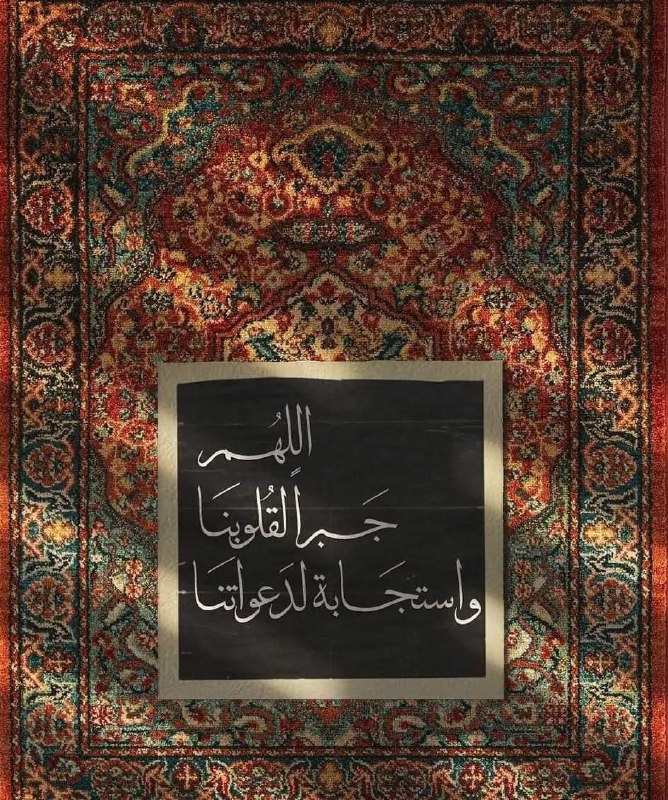 اللهُم
جَبراً لقُلوبنَا
واستجَابة لدَعواتنَا